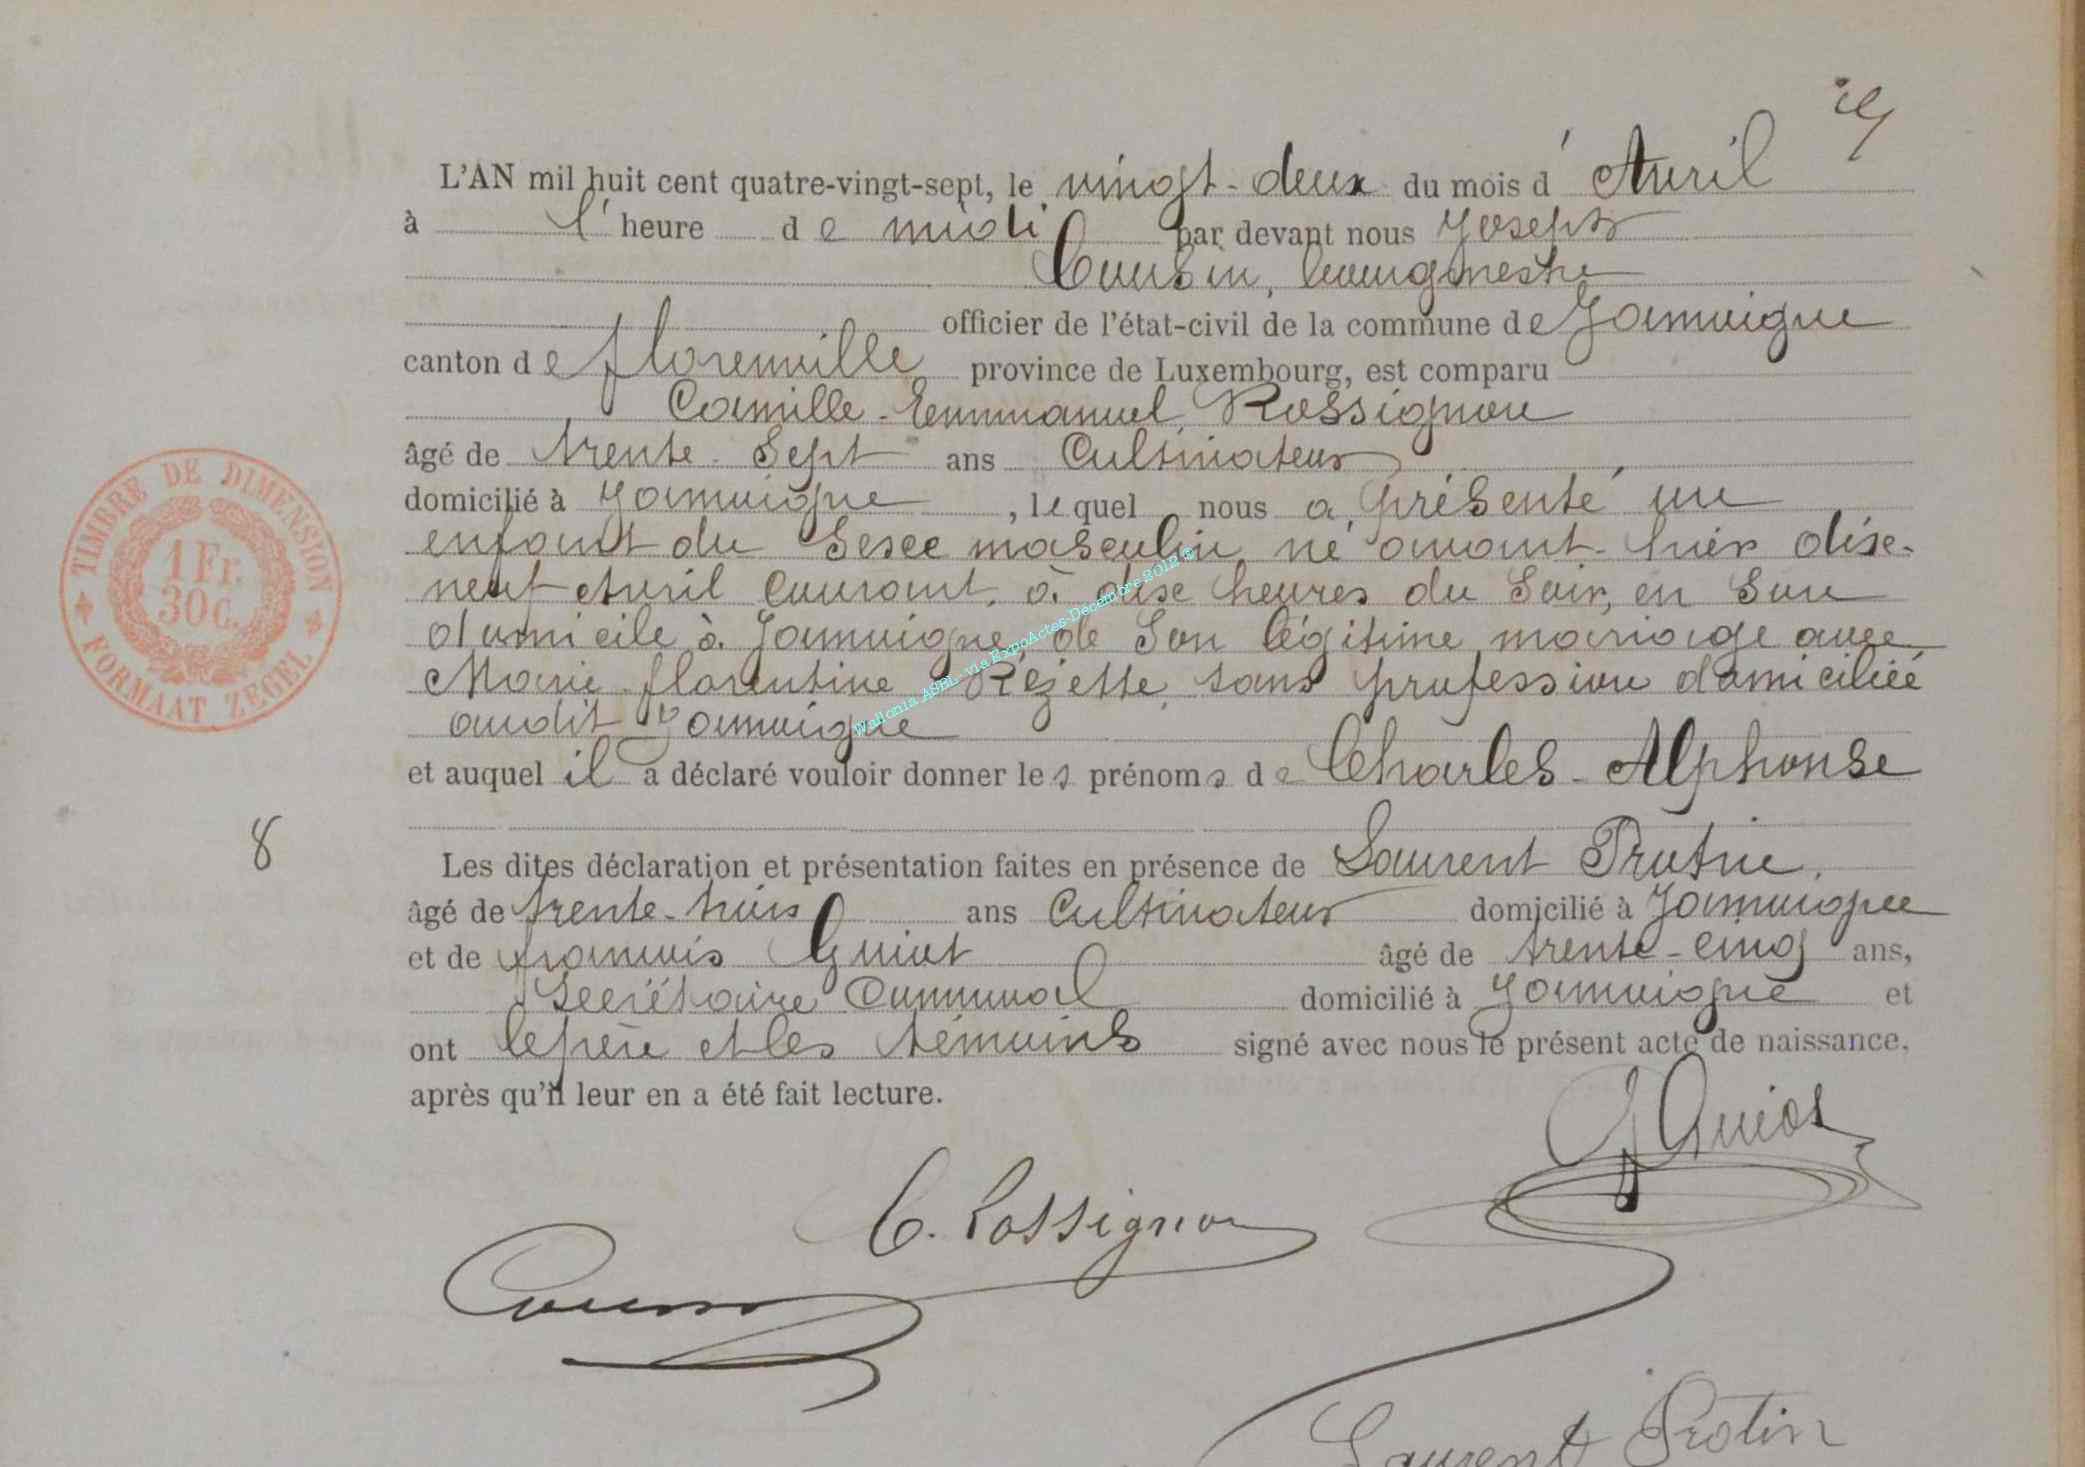 L'AN mil huit cent quatre-vingt-sept, le vingt-deux du mois d' Avril
à l'heure de midi par devant nous Joseph
Coursin, bourgmestre
officier de l'état-civil de la commune de Jamoigne
canton de florenville province de Luxembourg, est comparu
Camille-Emmanuel Rossignon
âgé de trente-sept ans Cultivateur
domicilié à Jamoigne, lequel nous a présenté un
enfant du Sexe masculin né avant-hier dix-
neuf Avril courant, à dix heures du Soir, en Son
domicile à Jamoigne, de Son légitime mariage avec
Marie-florentine Rézette, sans profession domiciliée
audit Jamoigne
et auquel il a déclaré vouloir donner les prénoms de Charles-Alphonse
8
Les dites déclaration et présentation faites en présence de Laurent Protin,
âgé de trente-trois ans Cultivateur domicilié à Jamoigne
et de françois Guiot âgé de trente-cinq ans,
Secrétaire Communal domicilié à Jamoigne et
ont le père et les témoins signé avec nous le présent acte de naissance,
après qu'il leur en a été fait lecture.
Guiot
C. Rossignon
Laurent Protin
TIMBRE DE DIMENSION
1 Fr.
30 c.
FORMAAT ZEGEL
Wallonia ASBL - via ExpoActes-Décembre 2012